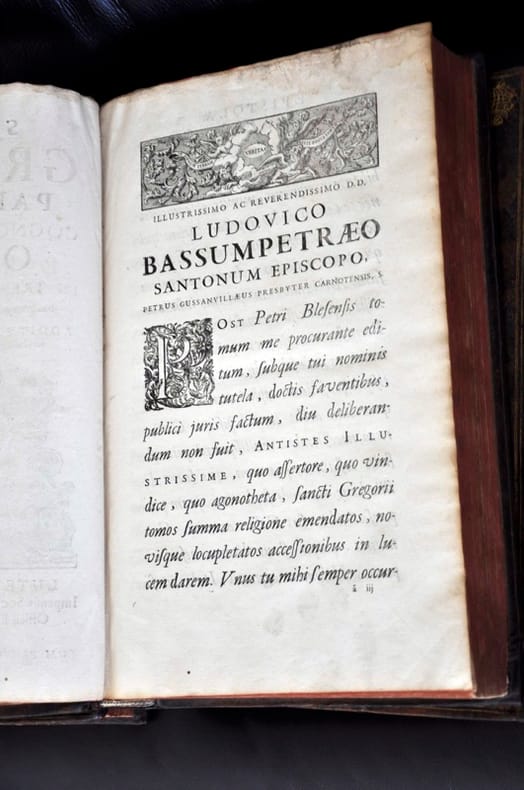 VERITAS
ILLUSTRISSIMO AC REVERENDISSIMO D.D.
LUDOVICO
BASSUMPETRÆO
SANTONUM EPISCOPO,
PETRUS GUSSANVILLÆUS PRESBYTER CARNOTENSIS, S.
POST Petri Blesensis to-
mum me procurante edi-
tum, ſubque tui nominis
tutela, doctis faventibus,
publici juris factum, diu deliberan-
dum non fuit, ANTISTES ILLU-
STRISSIME, quo aſſertore, quo vin-
dice, quo agonotheta, ſancti Gregorii
tomos ſumma religione emendatos, no-
viſque locupletatos acceſſionibus in lu-
cem darem. Vnus tu mihi ſemper occur-
ã iij